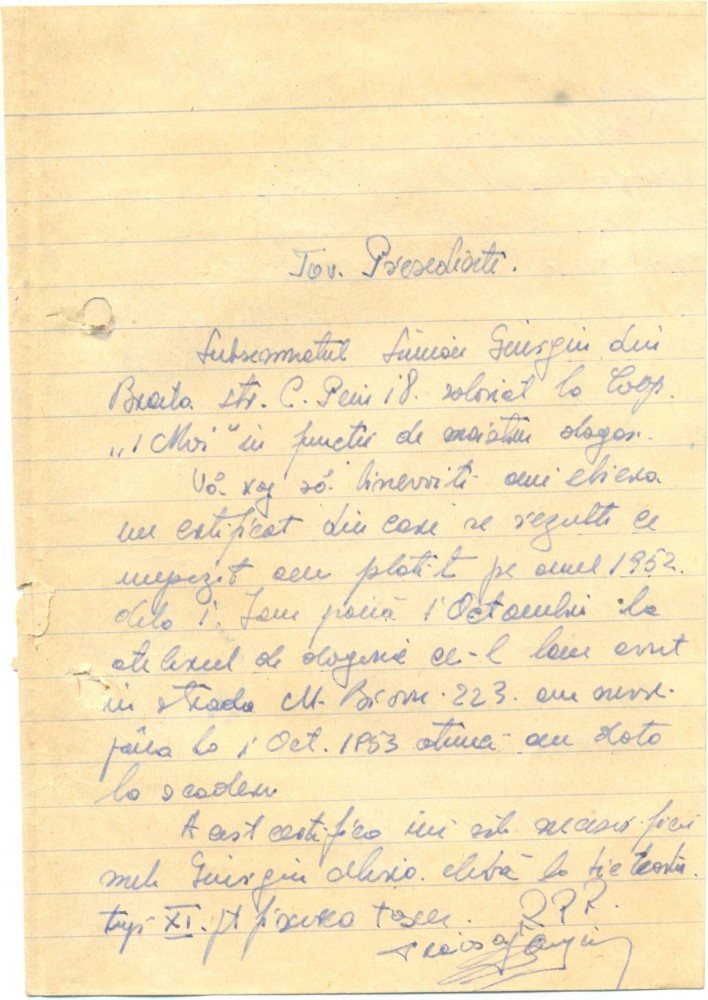 Tov. Președinte.
Subsemnatul Simion Giurgiu din
Braila str. C. Peiu 18. salariat la Coop.
„1 Mai" in functie de maistru dogar.
Vă rog să binevoiti ami elibera
un certificat din care se rezulte ce
impozit am platit pe anul 1952.
dela 1. Ian până 1 Octombrie la
atelierul de dogerie ce-l lam avut
in strada M. Bravu. 223. am
până la 1 Oct. 1953 atunci am dato
la scadere
Acest certifica imi este necesar fiicei
mele Giurgiu elevă la
XI. pt fixarea taxei. RPR.